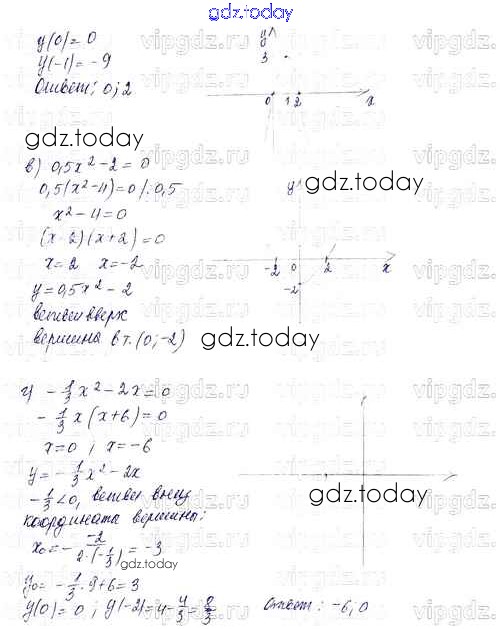 gdz.today
y(0)=0
y(-1)=-9
Ответ: 0; 2
y
3
0 1 2 x
gdz.today
в) 0,5x²-2=0
0,5(x²-4)=0 /:0,5
x²-4=0
(x-2)(x+2)=0
x=2 x=-2
y=0,5x²-2
ветви вверх
вершина в т. (0;-2)
y
-2 0 2 x
-2
gdz.today
г) -1/3x²-2x=0
-1/3x(x+6)=0
x=0; x=-6
y=-1/3x²-2x
-1/3<0, ветви вниз
координата вершины:
x₀=-(-2)/(2·(-1/3))=-3
gdz.today
y₀=-1/3·9+6=3
y(0)=0; y(-2)=4-4/3=8/3
Ответ: -6; 0
gdz.today
vipgdz.ru